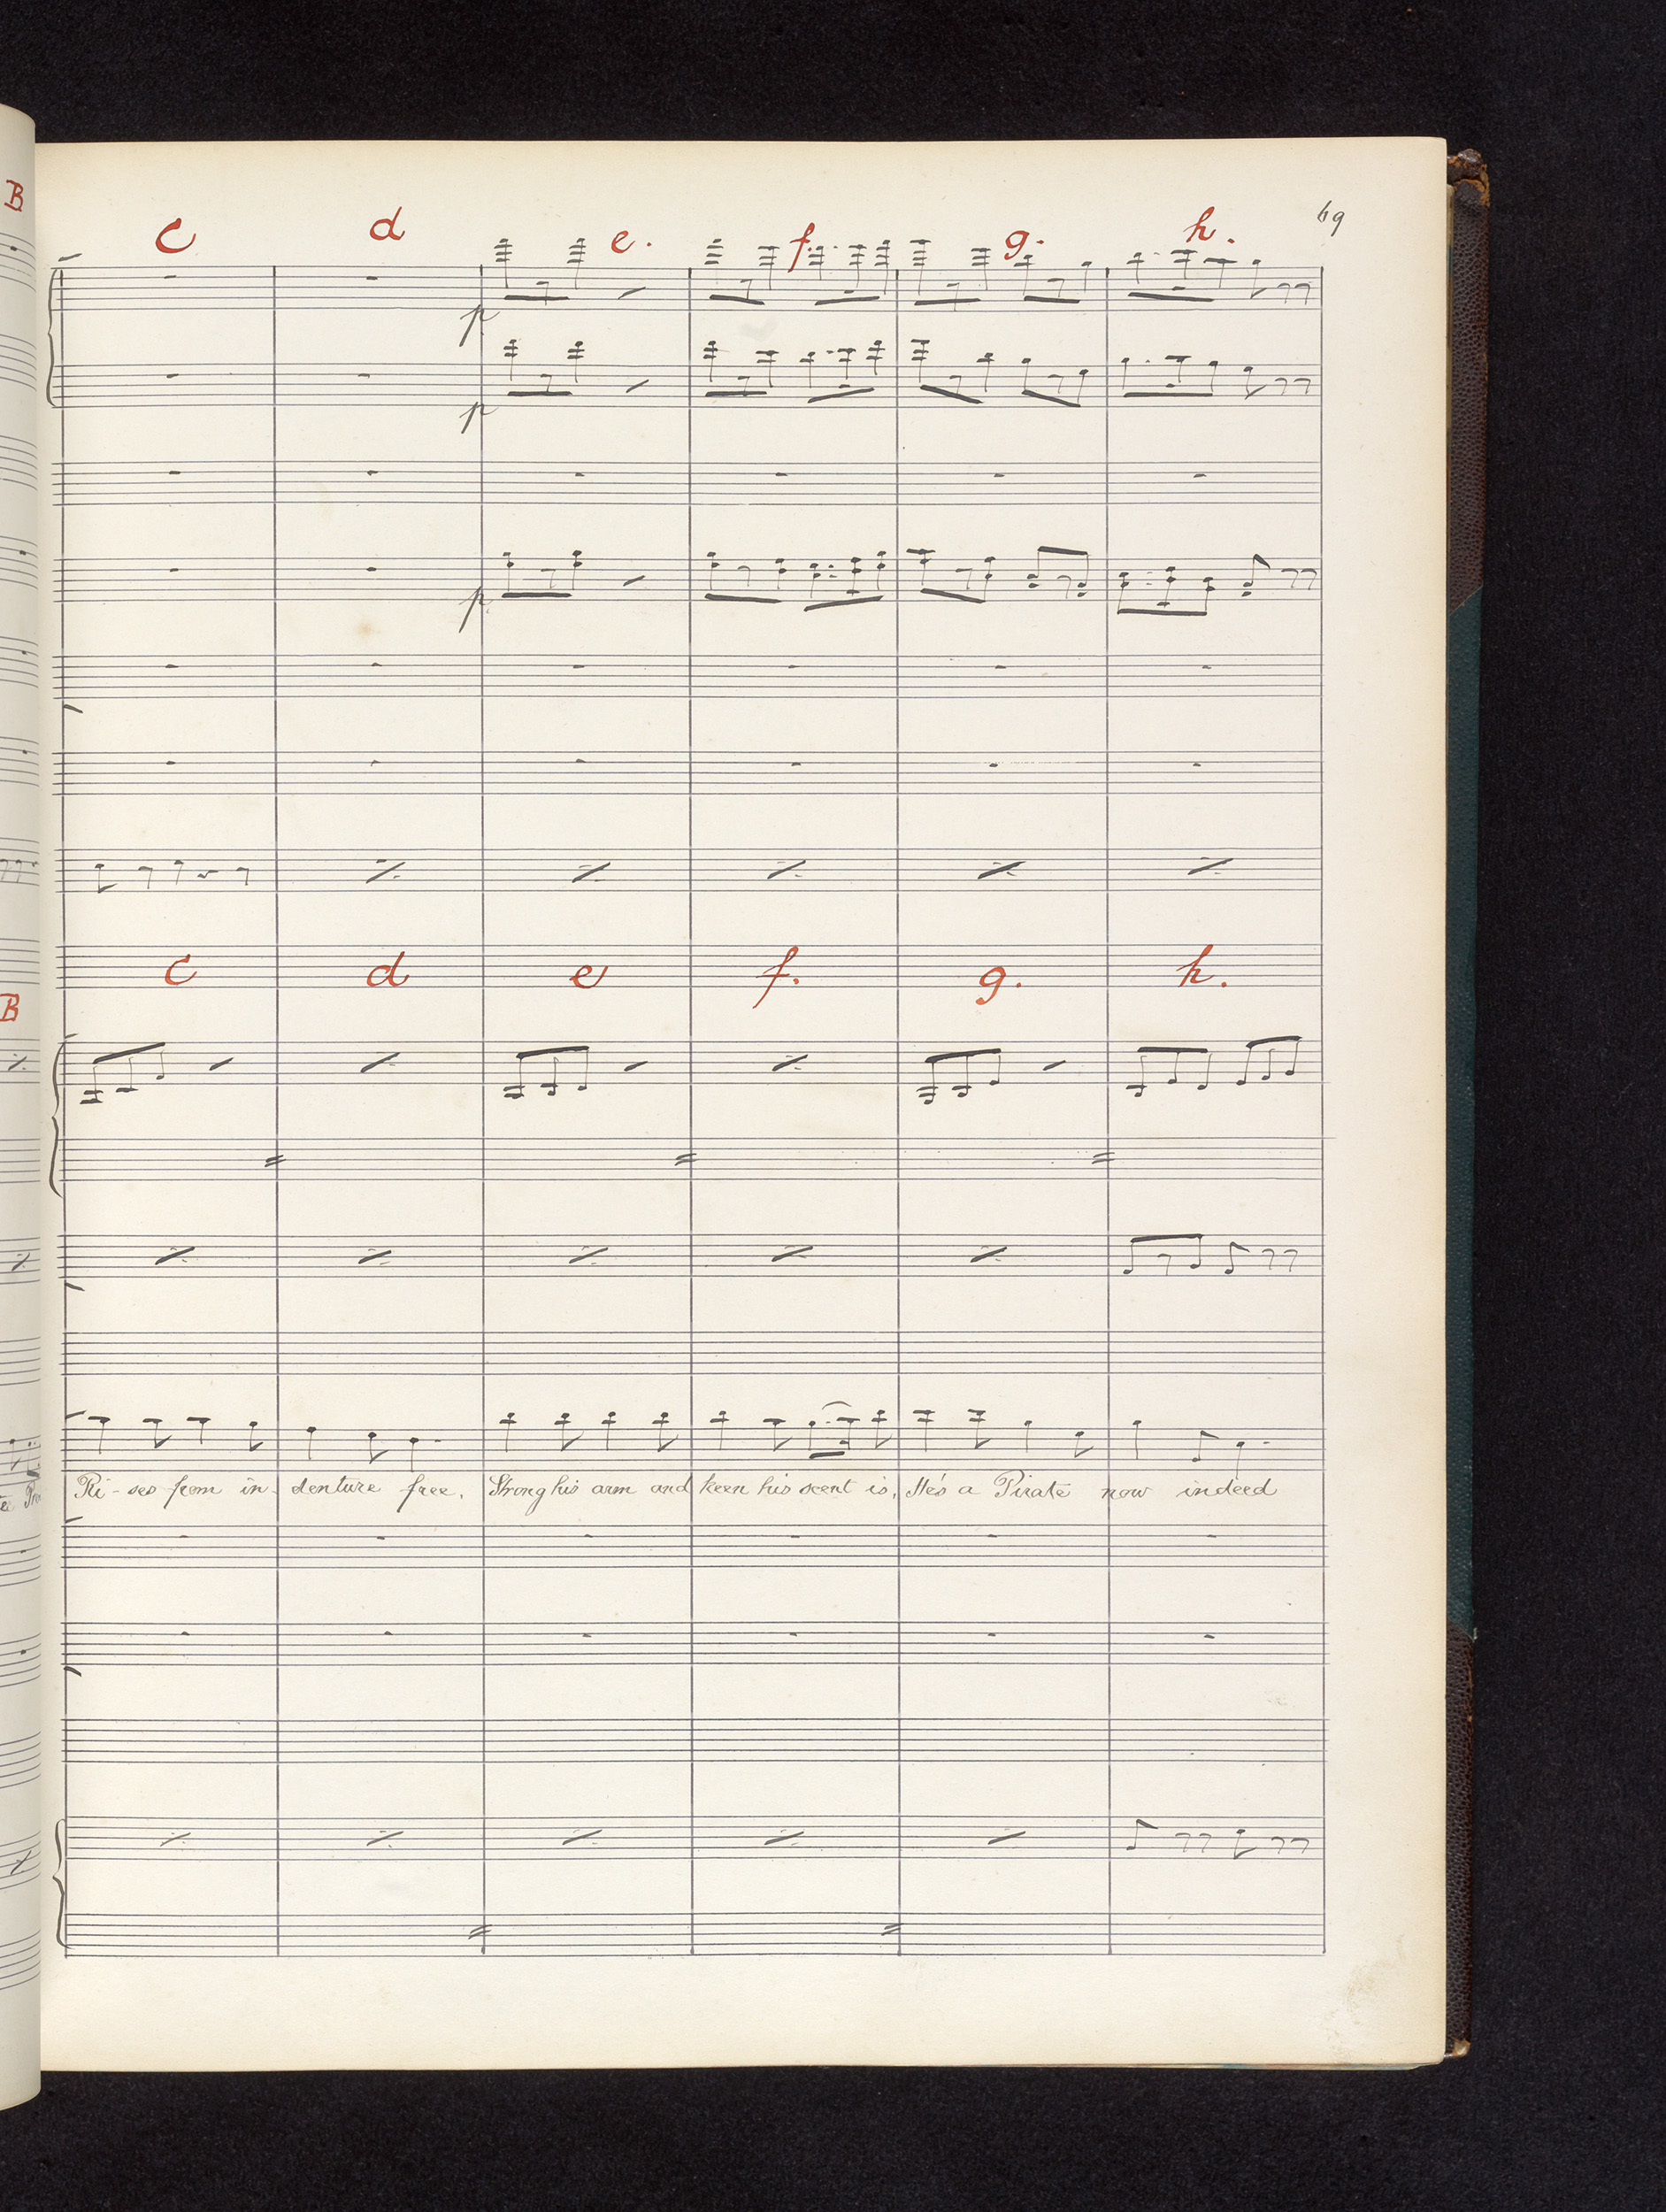 69
B
C d e. f. g. h.
p
p
p
C d e f. g. h.
B
Ri - ses from in - denture free, Strong his arm and keen his scent is, He's a Pirate now indeed